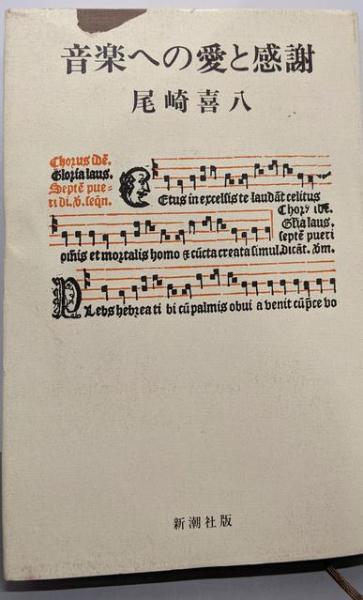 音楽へへの愛と感謝
尾崎喜八
Chorus idē.
Gloria laus.
Septē pue-
ri di. V̄. seqn̄.
Cetus in excelsis te laudāt celitus
Chorꝰ idē.
Gl̄ia laus.
septē pueri
om̄is et mortalis homo ⁊ cūcta creata simul. Dicāt. V̄m.
Plebs hebrea ti bi cū palmis obui a venit cū p̄ce vo
新潮社版